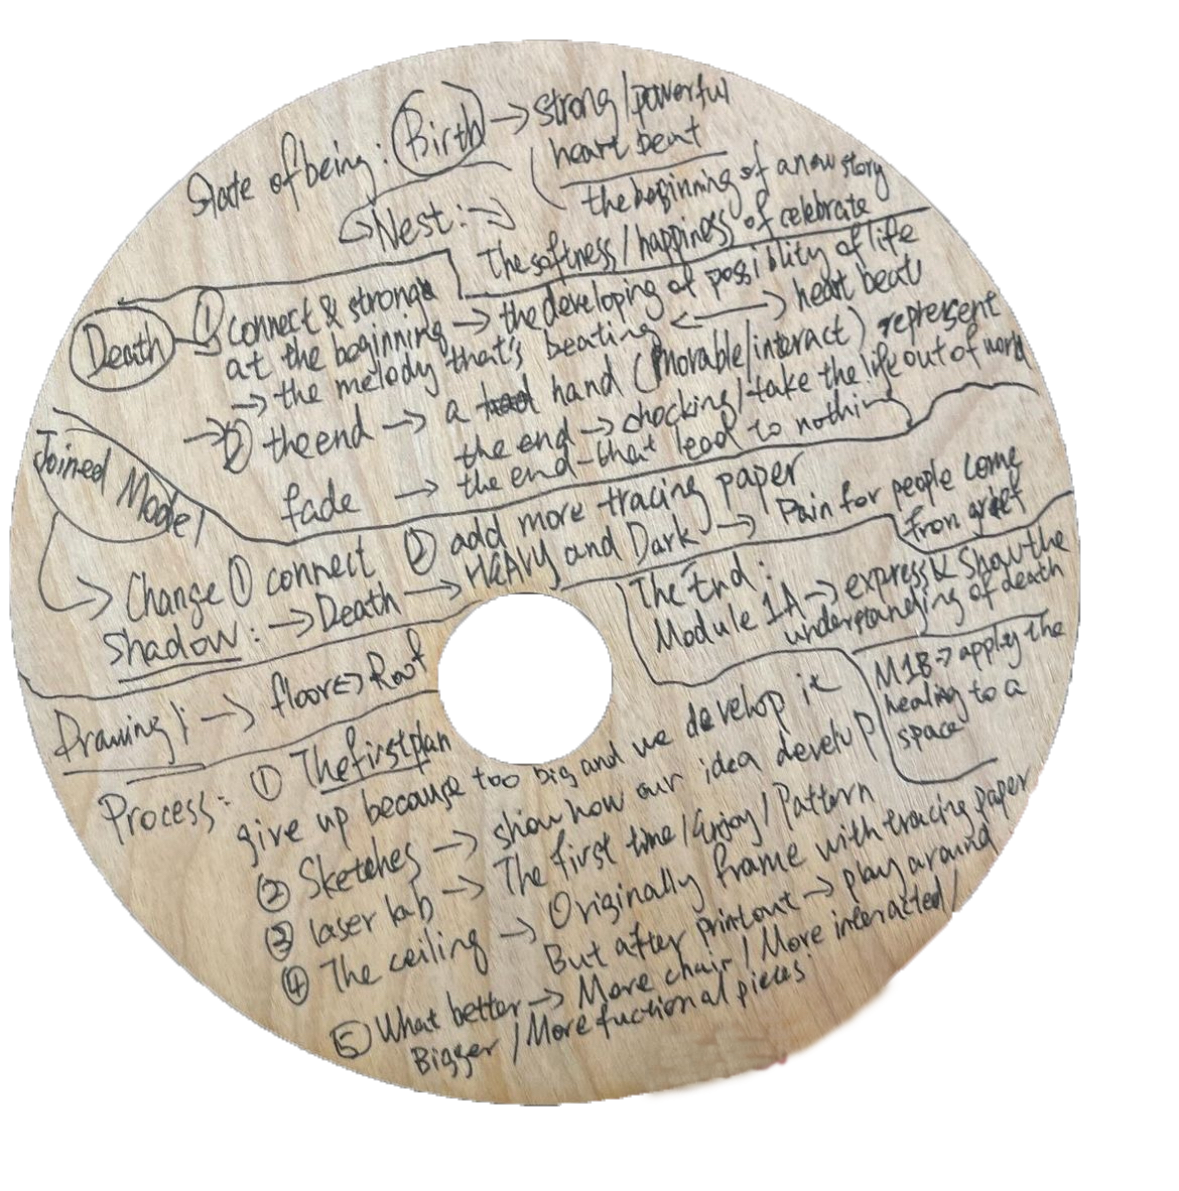 State of being: Birth → strong/powerful
heart beat
the beginning of a new story
↳ Nest: →
The softness/happiness of celebrate
Death ① connect & strong
at the beginning → the developing of possiblity of life
→ the melody that's beating ⟷ heart beat
→ ② the end → a hand (Morable/interact) represent
the end → chocking/take the life out of world
fade → the end - that lead to nothing
Joined Model
→ Change ① connect ② add more tracing paper
shadow: → Death → HEAVY and Dark → Pain for people come
from grief
The End:
Module 1A → express & Show the
understanding of death
M1B → apply the
healing to a
space
Drawing: → floor ↔ Roof
Process: ① The first plan
give up because too big and we develop it
② Sketches → show how our idea develop
③ laser lab → The first time/Enjoy/Pattern
④ The ceiling → Originally frame with tracing paper
But after printout → play around
⑤ What better → More chair/More interacted/
Bigger/More fuctional pieces